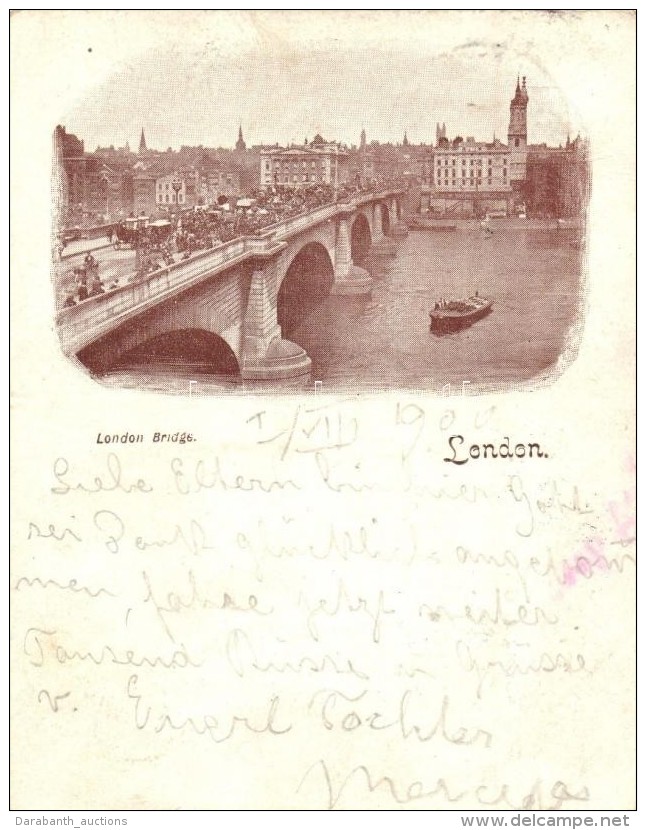 London Bridge.
I/VIII 1900
London.
Liebe Eltern bin hier Gott
sei Dank glücklich angekom
men, fahre jetzt weiter
Tausend Küsse u Grüsse
v. Tochter
Darabanth_auctions
www.delcampe.net